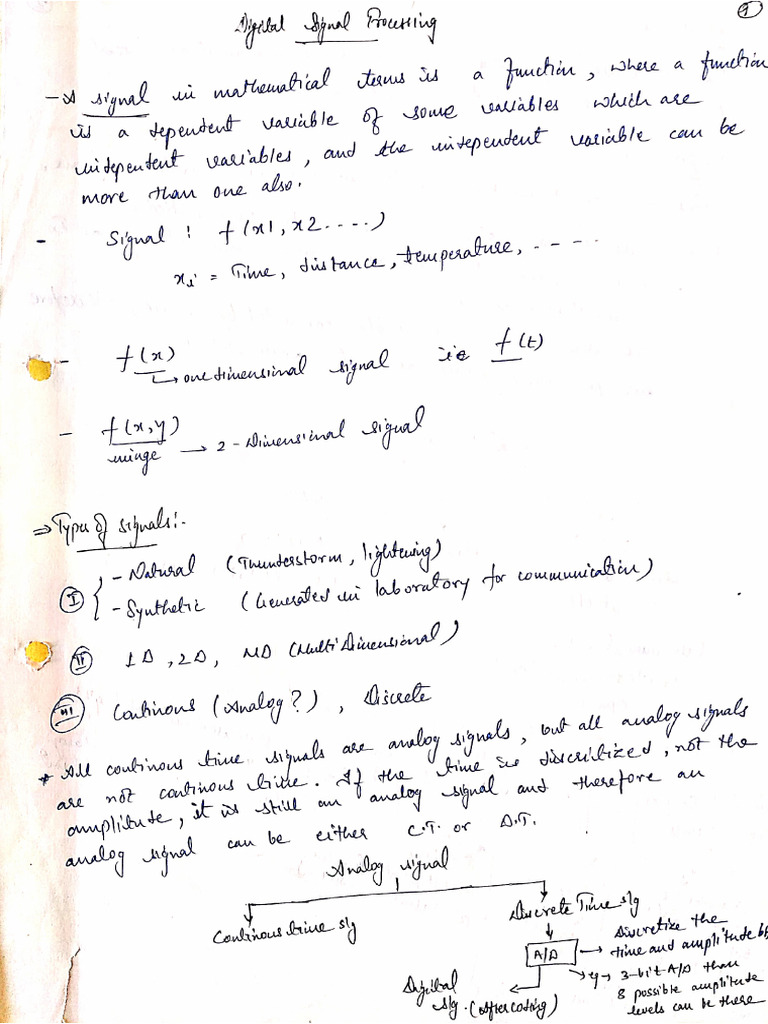 1
Digital Signal Processing
- A signal in mathematical terms is a function, where a function
is a dependent variable of some variables which are
independent variables, and the independent variable can be
more than one also.
- Signal : f(x1, x2 ....)
xi = Time, distance, temperature, - - - -
- f(x)
↳ one dimensional signal i.e f(t)
- f(x,y)
image → 2-Dimensional signal
⇒ Types of signals:-
I { - Natural (Thunderstorm, lightening)
- Synthetic (Generated in laboratory for communication)
II 1D, 2D, MD (Multi Dimensional)
III Continous (Analog?), Discrete
* All continous time signals are analog signals, but all analog signals
are not continous time. If the time is discritized, not the
amplitude, it is still an analog signal and therefore an
analog signal can be either C.T. or D.T.
Analog signal
Continous time s/g
Discrete Time s/g
A/D → Discretize the
time and amplitude both
→ eg → 3-bit A/D than
8 possible amplitude
levels can be there
Digital
s/g. (after coding)